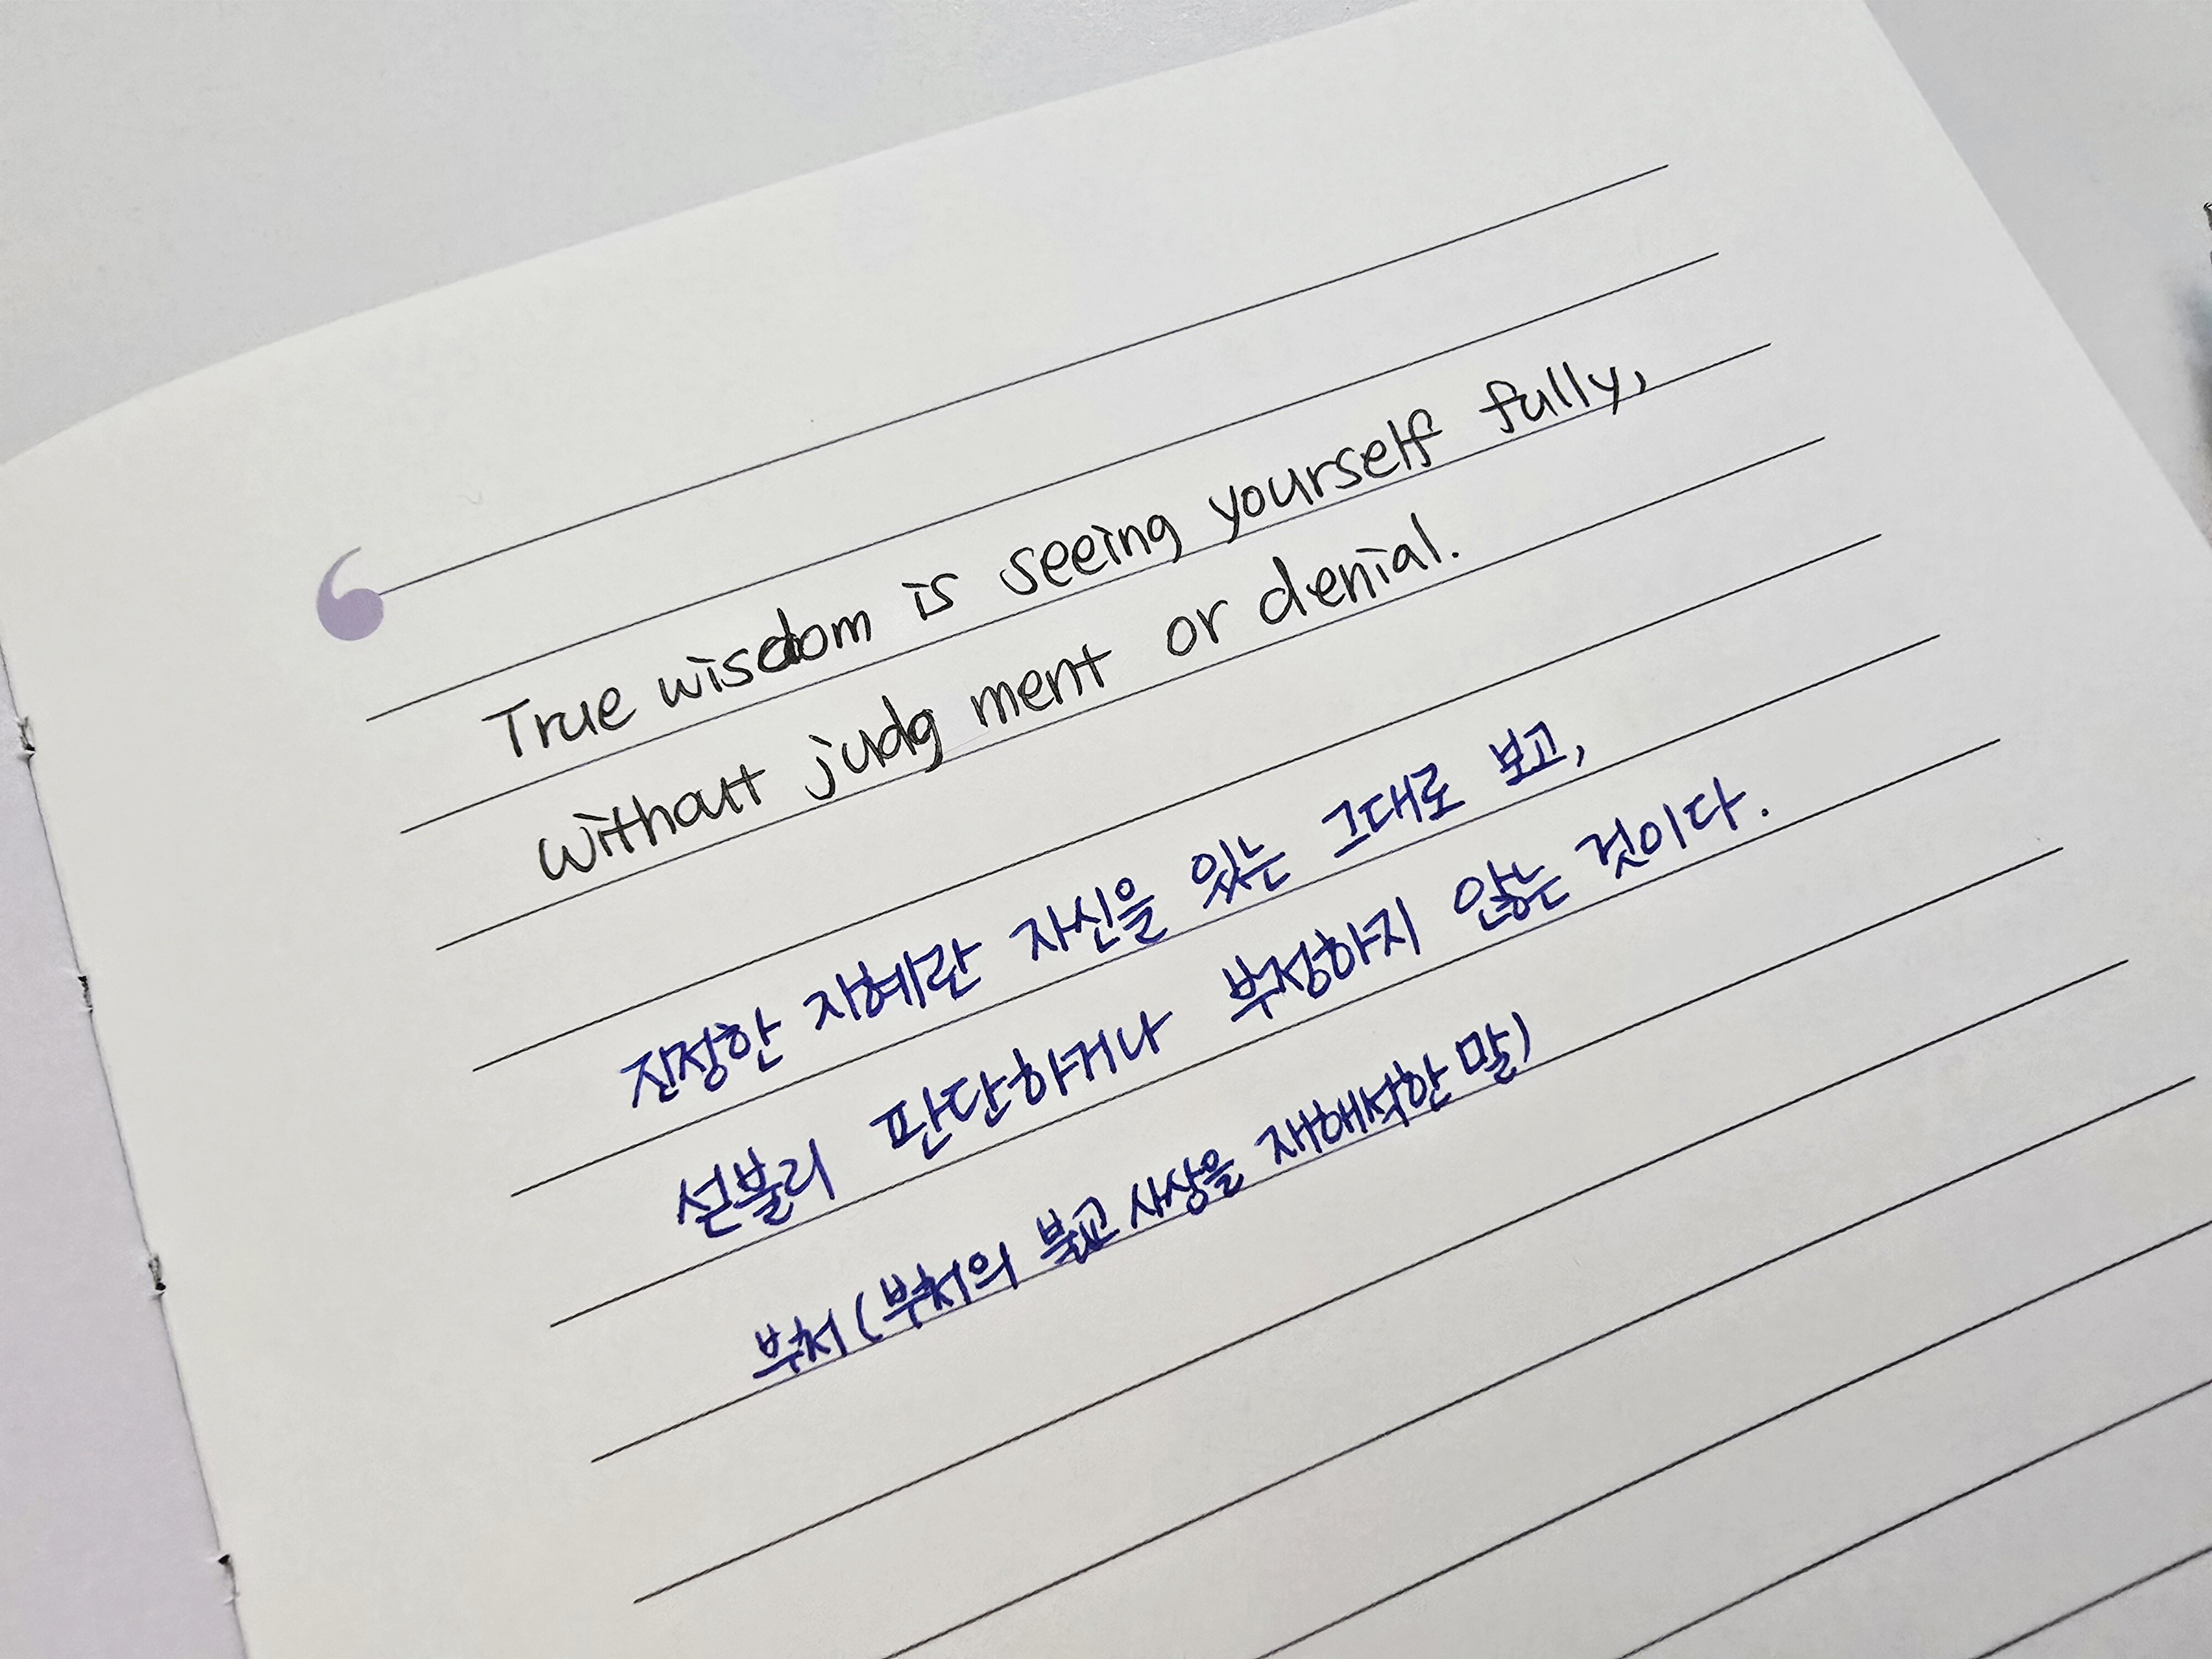 True wisdom is seeing yourself fully,
without judg ment or denial.
진정한 지혜란 자신을 있는 그대로 보고,
섣불리 판단하거나 부정하지 않는 것이다.
부처 (부처의 불교 사상을 재해석한 말)